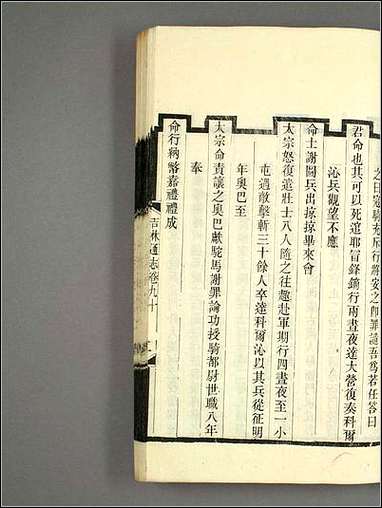 之曰寇騎充斥行將安之師罪誰吾爲若任答曰
君命也其可以死逭耶冒鋒鏑行兩晝夜達大營復奏科爾
沁兵觀望不應
命土謝圖兵出掠掠畢來會
太宗怒復遣壯士八人隨之往趣赴軍期行四晝夜至一小
屯遇敵擊斬三十餘人卒達科爾沁以其兵從征明
年奧巴至
太宗命責讓之奧巴獻駝馬謝罪論功授騎都尉世職八年
奉
命行納幣嘉禮禮成
吉林通志卷九十